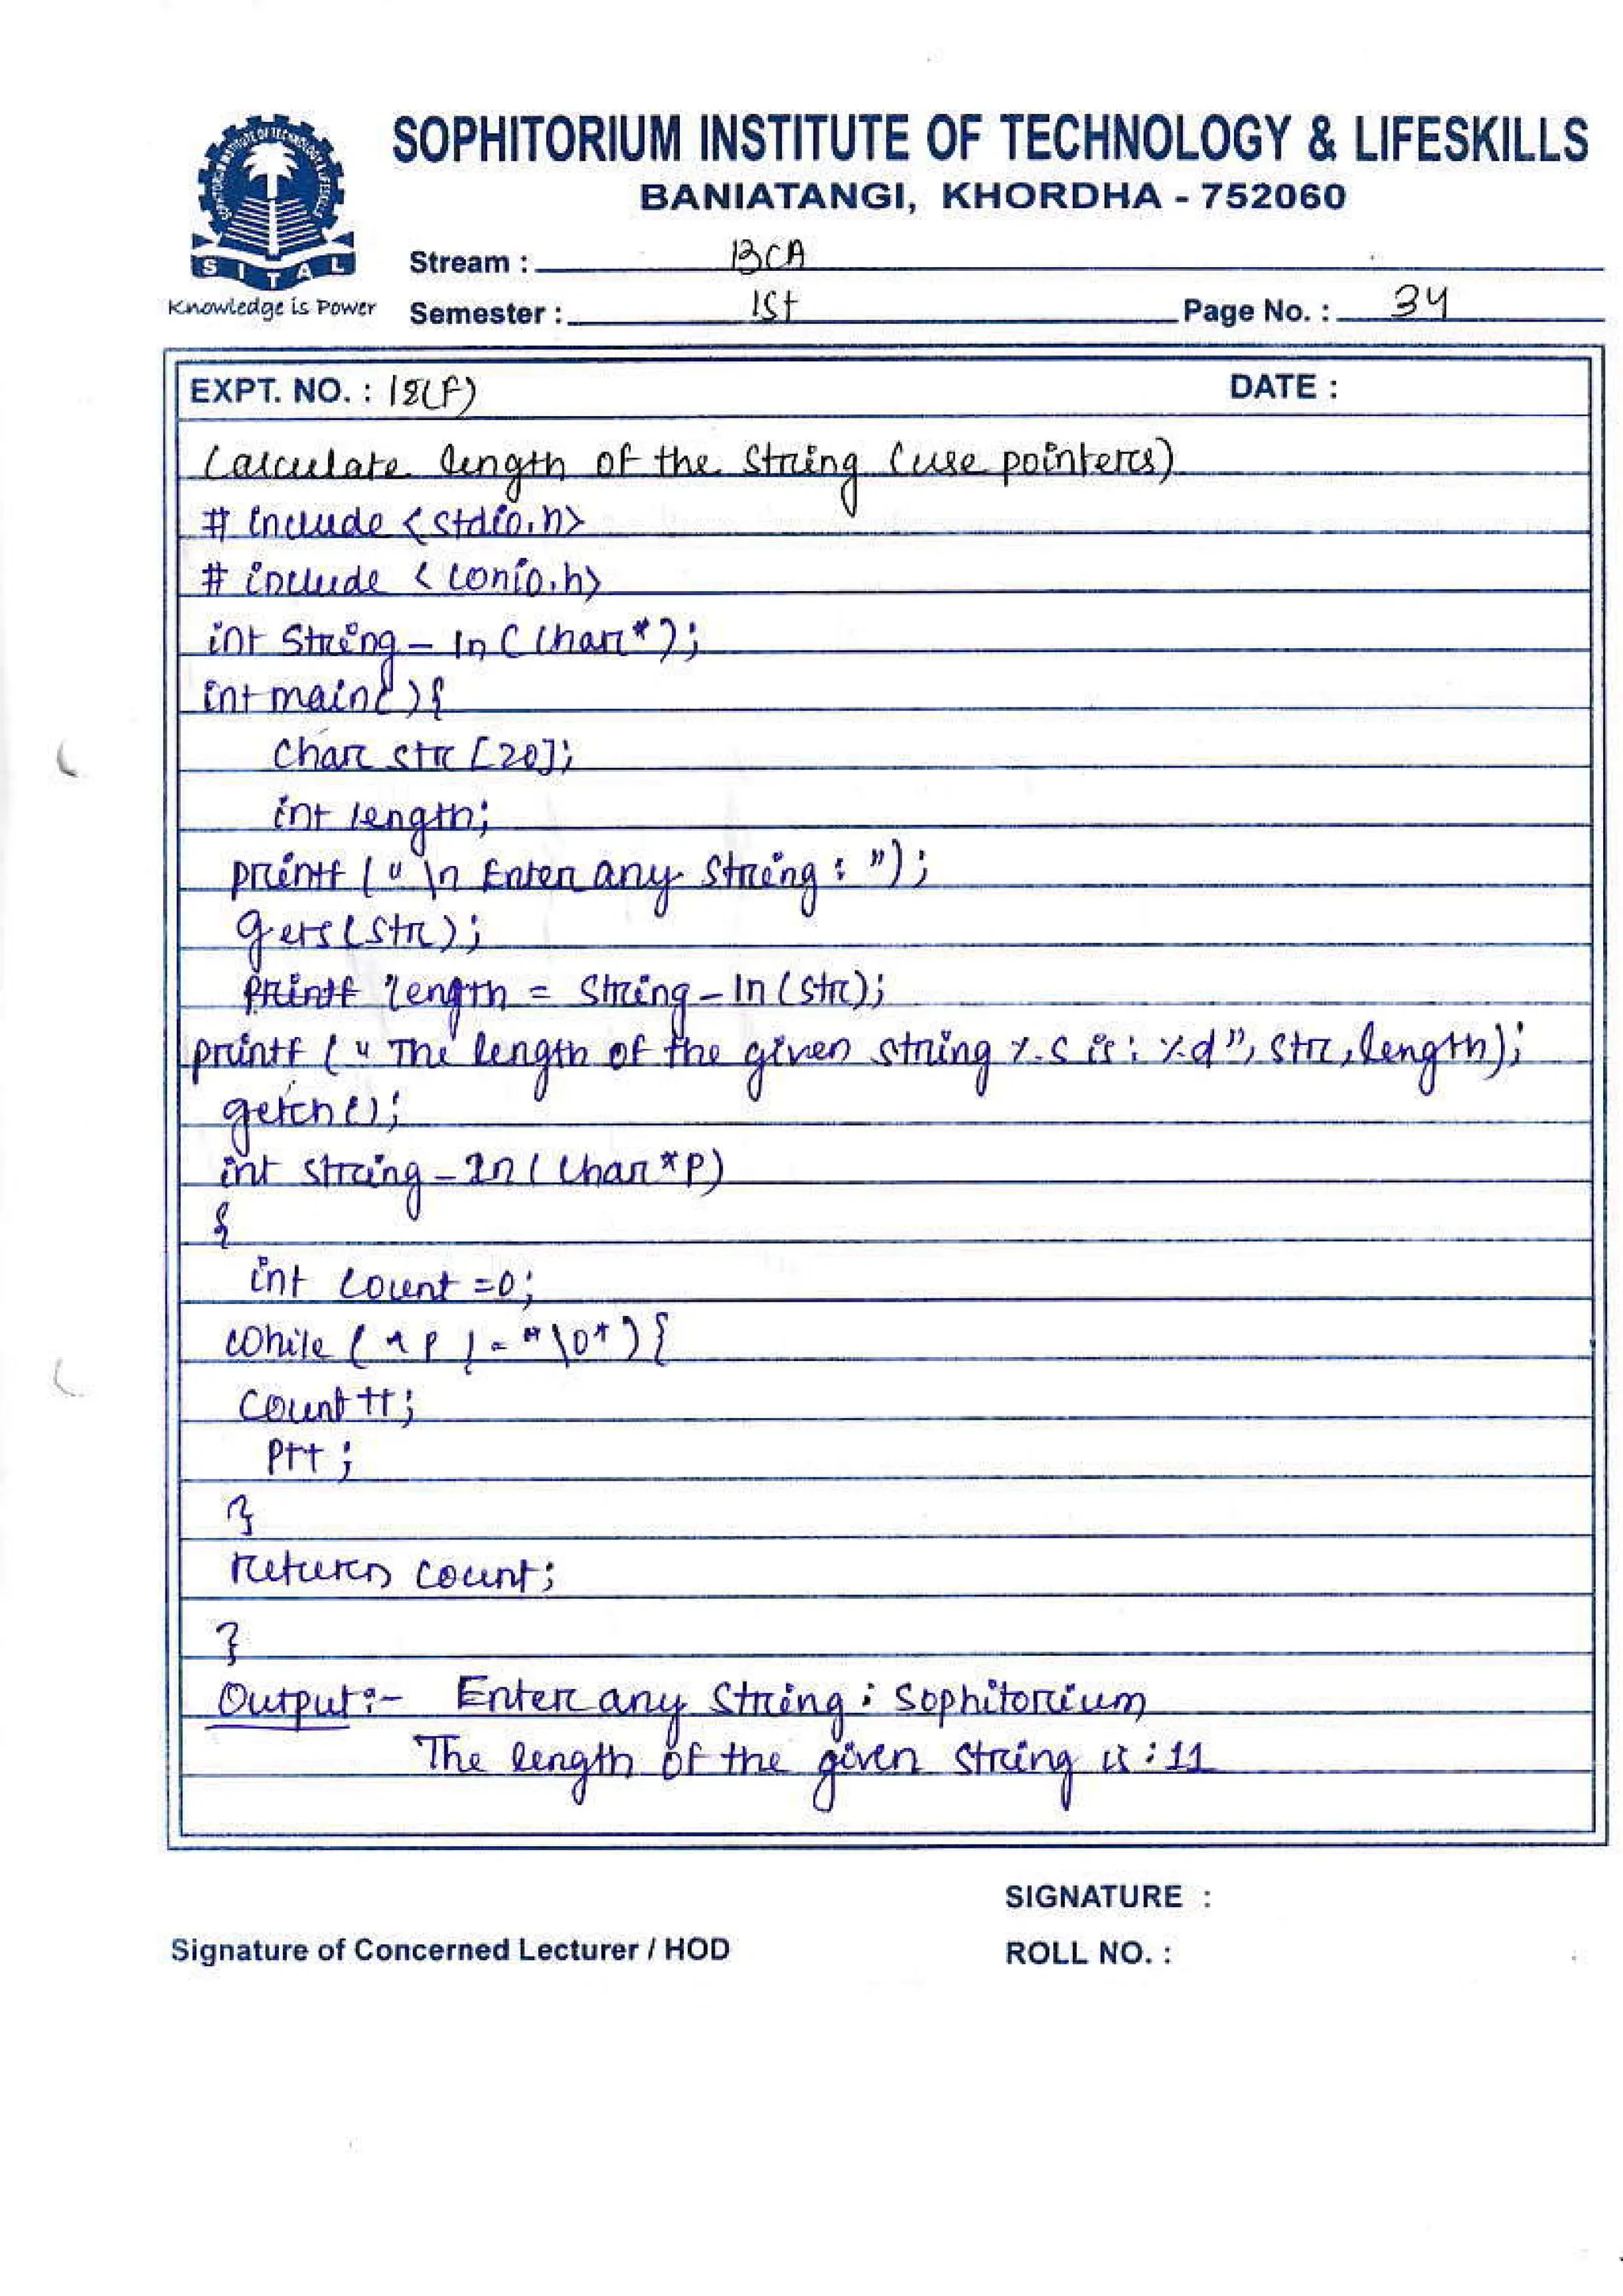 SOPHITORIUM INSTITUTE OF TECHNOLOGY & LIFESKILLS
BANIATANGI, KHORDHA - 752060
SITAL
Knowledge is Power
Stream : BCA
Semester : 1st Page No. : 34
EXPT. NO. : 18(F) DATE :
Calculate length of the String (use pointers)
# include <stdio.h>
# include <conio.h>
int String - ln (char*);
int main( ) {
char str [20];
int length;
printf (" \n Enter any string : ");
gets(str);
printf length = string - ln (str);
printf (" The length of the given string %.s is : %.d", str, length);
getch();
int string - ln ( char *p)
{
int count =0;
while ( *p != "\0*) {
count ++;
p++ ;
}
return count;
}
Output:- Enter any string : Sophitorium
The length of the given string is : 11
SIGNATURE :
Signature of Concerned Lecturer / HOD
ROLL NO. :